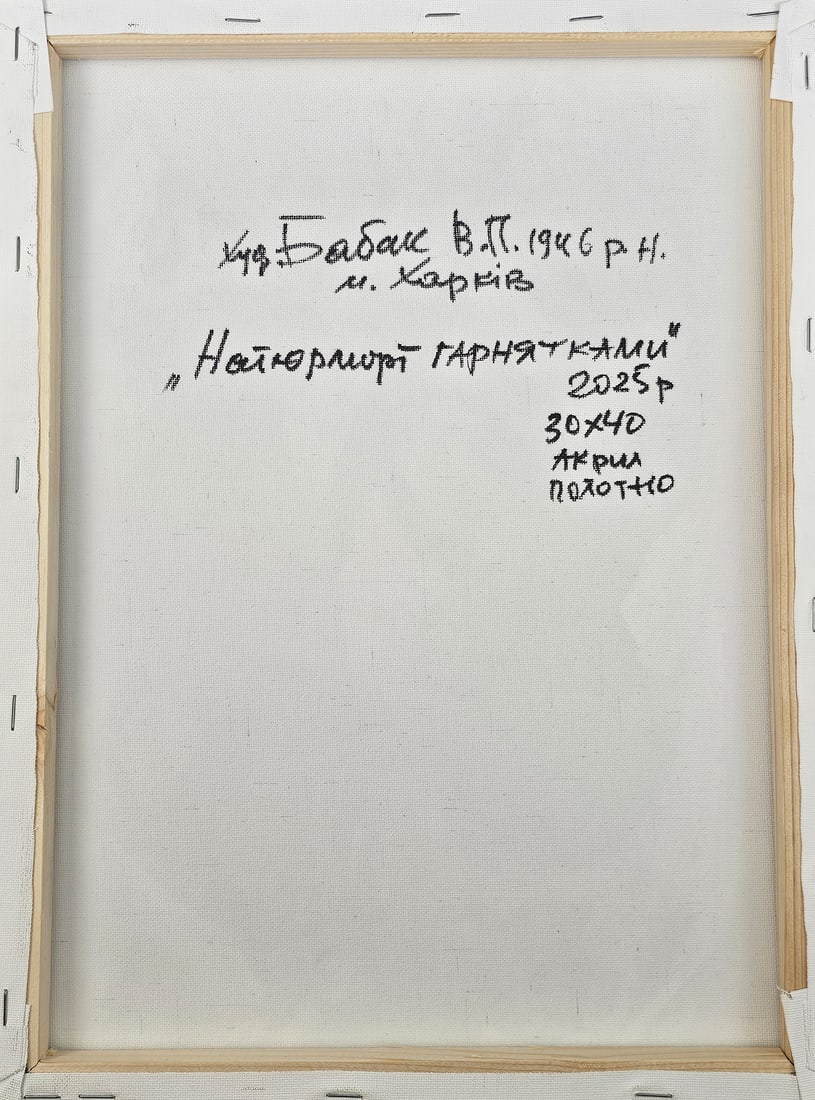 Худ. Бабак В.П. 1946 р.н.
м. Харків
„Натюрморт гарнятками"
2025р
30х40
Акрил
полотно